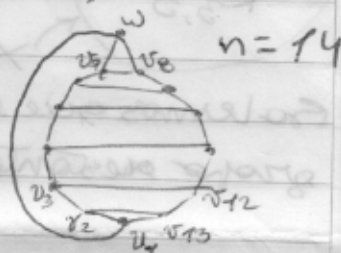 w
n = 14
v₇ v₈
v₃
v₁₂
v₂ v₁ v₁₃